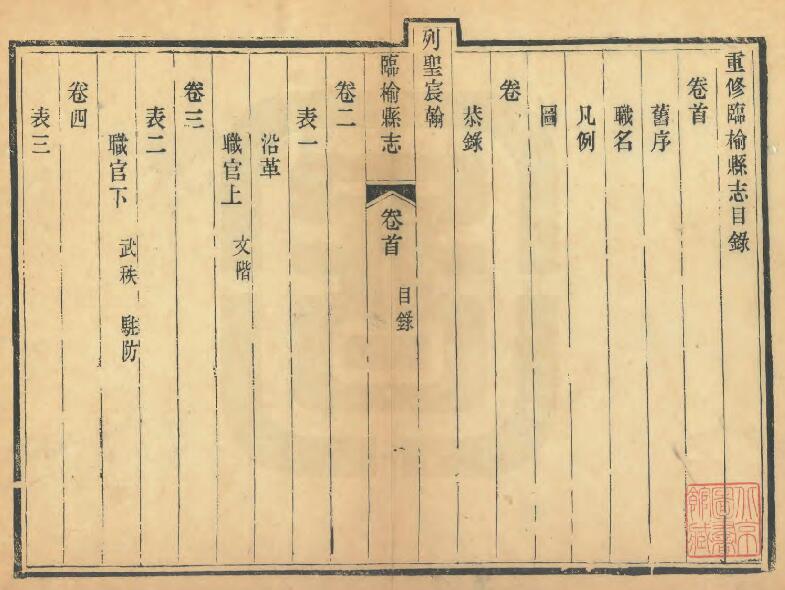 重修臨榆縣志目錄
卷首
舊序
職名
凡例
圖
卷
恭錄
列聖宸翰
臨榆縣志 卷首 目錄
卷二
表一
沿革
職官上 文階
卷三
表二
職官下 武秩 駐防
卷四
表三
北京
圖書
館藏